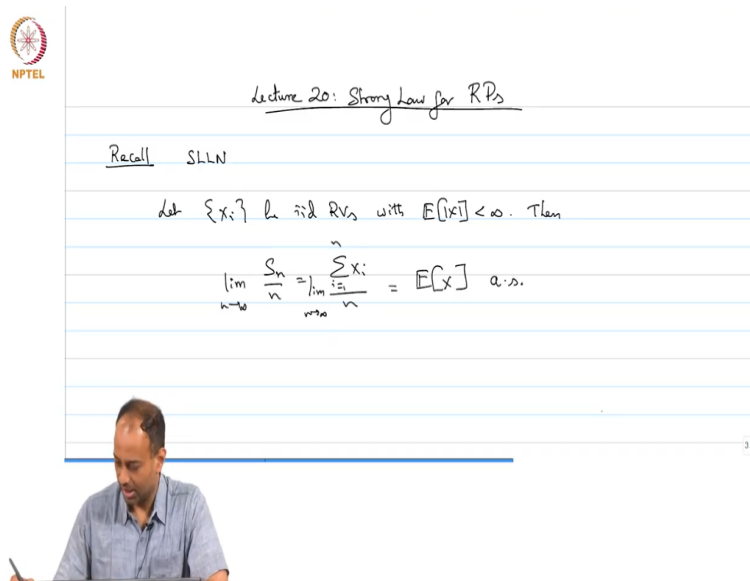 NPTEL
Lecture 20: Strong Law for RPs
Recall SLLN
Let {Xi} be iid RVs with E[|X|] < ∞. Then
lim n→∞ Sn/n = lim n→∞ ∑_{i=1}^{n} Xi / n = E[X] a.s.
3